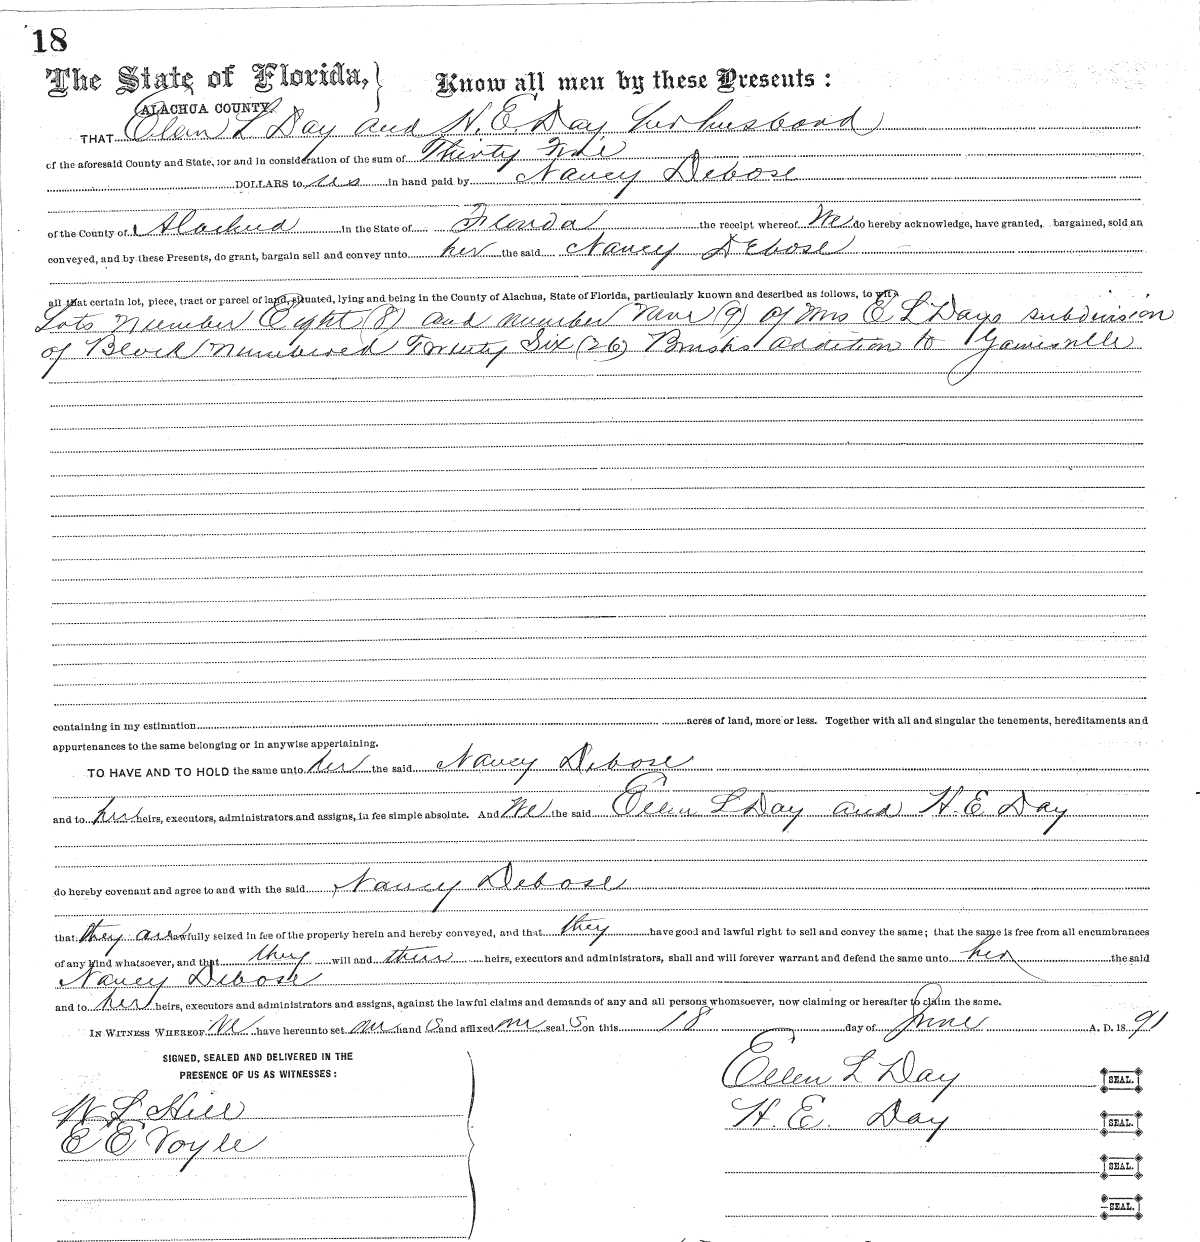 18
The State of Florida, } Know all men by these Presents :
ALACHUA COUNTY.
THAT Ellen L Day and H. E. Day her husband
of the aforesaid County and State, for and in consideration of the sum of Thirty Five
DOLLARS to us in hand paid by Nancy Debose
of the County of Alachua in the State of Florida the receipt whereof We do hereby acknowledge, have granted, bargained, sold an
conveyed, and by these Presents, do grant, bargain sell and convey unto her the said Nancy DEbose
all that certain lot, piece, tract or parcel of land, situated, lying and being in the County of Alachua, State of Florida, particularly known and described as follows, to wit:
Lots Number Eight (8) and number nine (9) of Mrs E L Days subdivision
of Block Numbered Twenty Six (26) Brushs addition to Gainesville
containing in my estimation acres of land, more or less. Together with all and singular the tenements, hereditaments and
appurtenances to the same belonging or in anywise appertaining.
TO HAVE AND TO HOLD the same unto her the said Nancy Debose
and to her heirs, executors, administrators and assigns, in fee simple absolute. And We the said Ellen L Day and H. E Day
do hereby covenant and agree to and with the said Nancy Debose
that they are lawfully seized in fee of the property herein and hereby conveyed, and that they have good and lawful right to sell and convey the same; that the same is free from all encumbrances
of any kind whatsoever, and that they will and their heirs, executors and administrators, shall and will forever warrant and defend the same unto her the said
Nancy Debose
and to her heirs, executors and administrators and assigns, against the lawful claims and demands of any and all persons whomsoever, now claiming or hereafter to claim the same.
IN WITNESS WHEREOF We have hereunto set our hand s and affixed our seal s on this 18 day of June A. D. 18 91
SIGNED, SEALED AND DELIVERED IN THE
PRESENCE OF US AS WITNESSES:
Ellen L Day SEAL.
W L Hill
H. E. Day SEAL.
E E Voyle
SEAL.
SEAL.